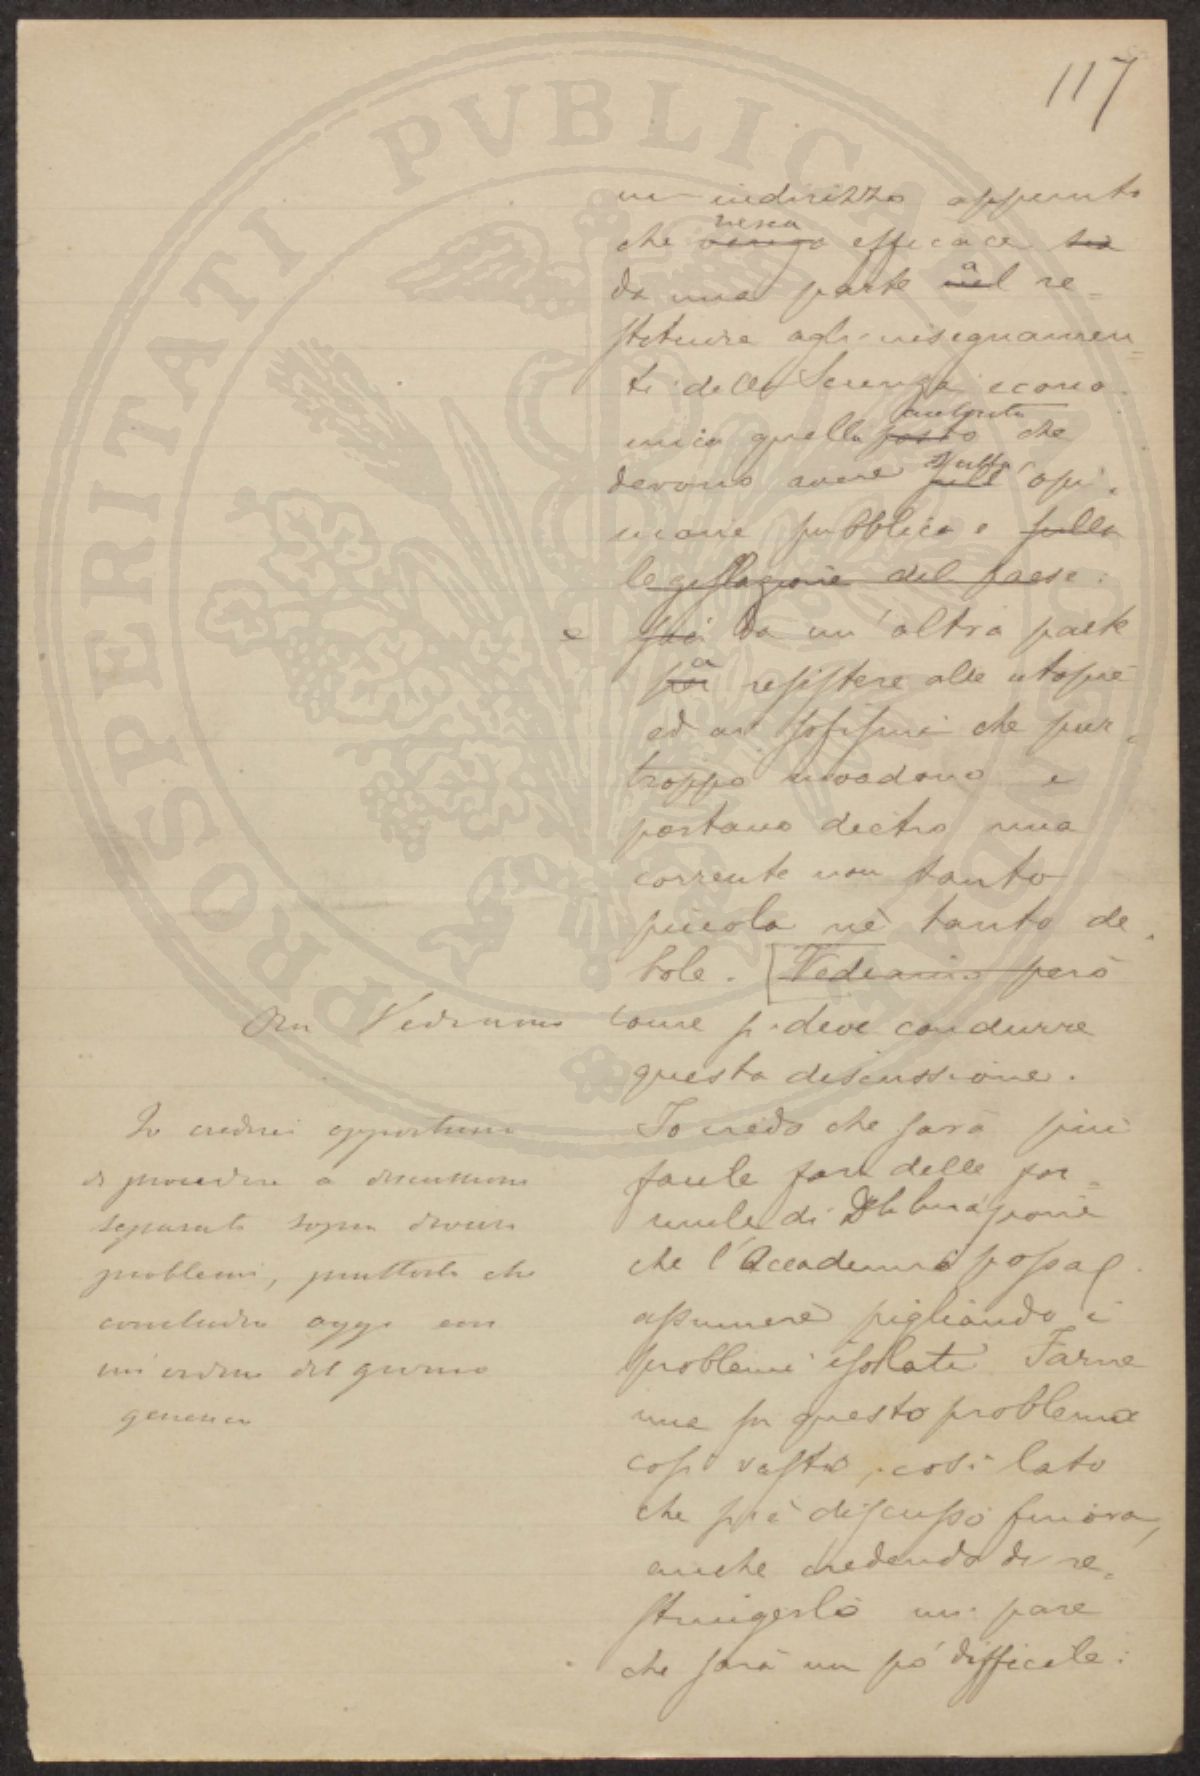 117
un indirizzo appunto
riesca
che venga efficace sia
da una parte nel a re=
stituire agli insegnamen=
ti della Scienza econo-
autorità
mica quella posto che
devono avere sull' opi-
nione pubblica e sulla
legislazione del paese.
e sia da un'altra parte
per a resistere alle utopie
ed ai sofismi che pur-
troppo invadono e
portano dietro una
corrente non tanto
piccola nè tanto de-
bole. Vediamo però
Ora Vediamo come si deve condurre
questa discussione.
Io credo che sarà più
facile fare delle for=
mule di deliberazione
che l'Accademia possa
assumere pigliando i
problemi isolati. Farne
una su questo problema
così vasto, così lato
che si è discusso finora,
anche credendo di re-
stringerlo mi pare
che sarà un pò difficile:
Io crederei opportuno
di procedere a discussioni
separate sopra diversi
problemi, piuttosto che
concludere oggi con
un ordine del giorno
generico